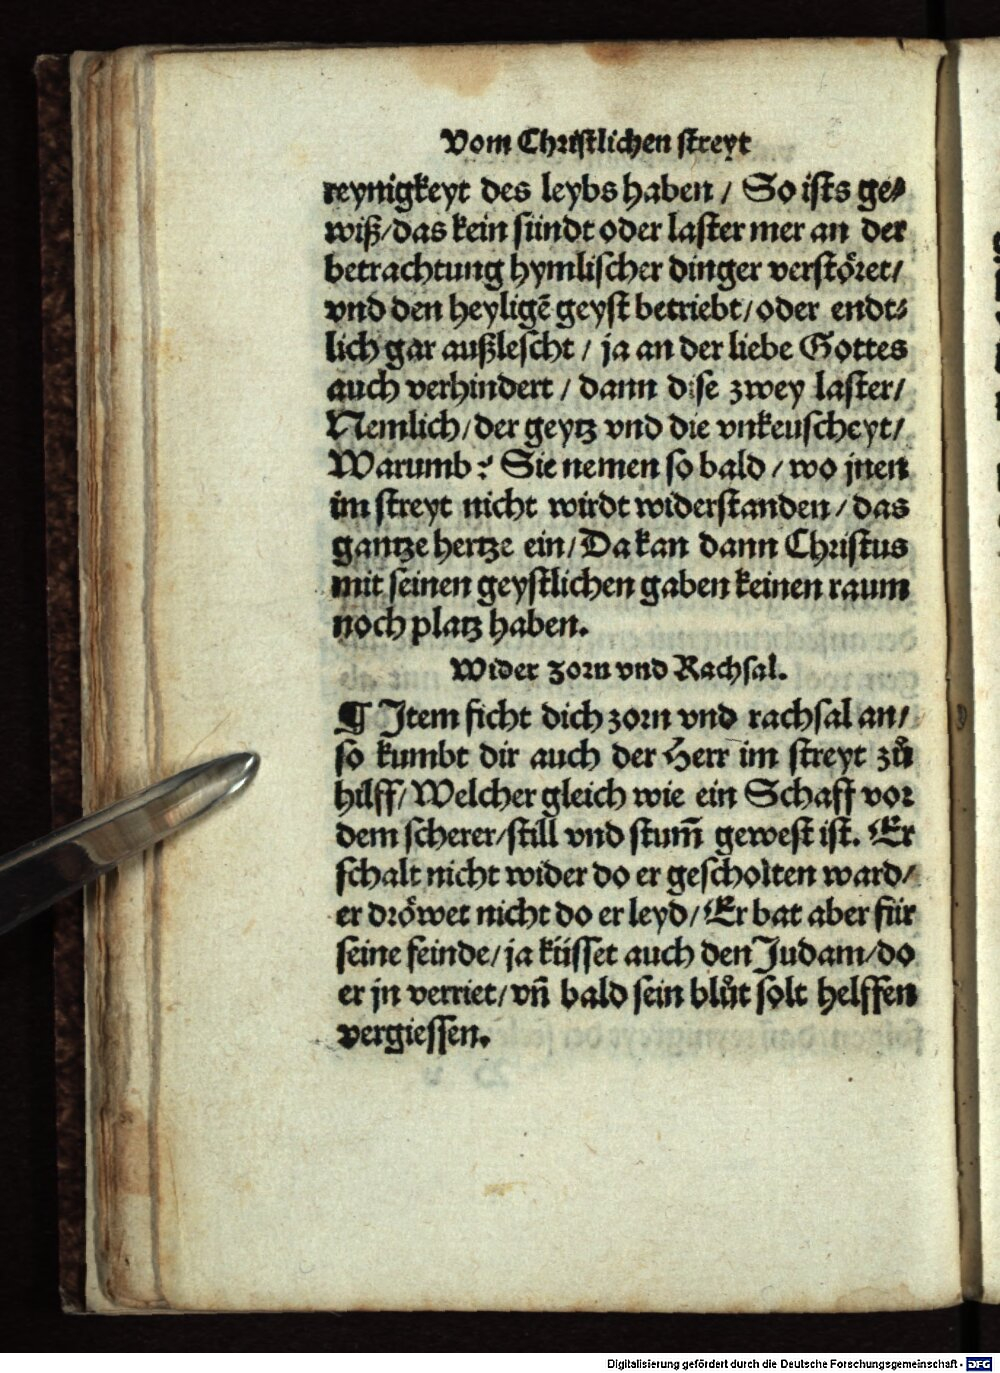 Vom Christlichen streyt
reynigkeyt des leybs haben / So ists ge⸗
wiß/das kein sündt oder laster mer an der
betrachtung hymlischer dinger verstöret/
vnd den heyligē geyst betriebt/oder endt⸗
lich gar außlescht / ja an der liebe Gottes
auch verhindert / dann dise zwey laster/
Nemlich/der geytz vnd die vnkeuscheyt/
Warumb? Sie nemen so bald / wo jnen
im streyt nicht wirdt widerstanden / das
gantze hertze ein/Da kan dann Christus
mit seinen geystlichen gaben keinen raum
noch platz haben.
Wider zorn vnd Rachsal.
¶ Item ficht dich zorn vnd rachsal an/
so kumbt dir auch der Herr im streyt zů
hilff/Welcher gleich wie ein Schaff vor
dem scherer/still vnd stum̄ gewest ist. Er
schalt nicht wider do er gescholten ward/
er dröwet nicht do er leyd/Er bat aber für
seine feinde/ja küsset auch den Judam/do
er jn verriet/vn̄ bald sein blůt solt helffen
vergiessen.
Digitalisierung gefördert durch die Deutsche Forschungsgemeinschaft - DFG